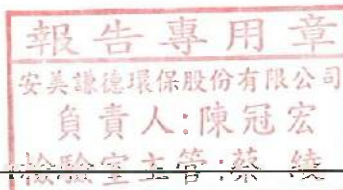 報告專用章
安美謙德環保股份有限公司
負責人:陳冠宏
檢驗室主管:蔡